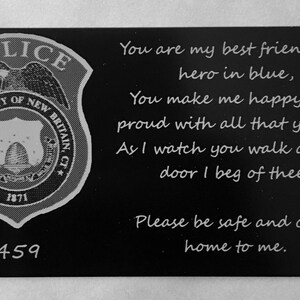 POLICE
CITY OF NEW BRITAIN, CT
1871
459
You are my best frien
hero in blue,
You make me happy
proud with all that y
As I watch you walk o
door I beg of thee
Please be safe and c
home to me.